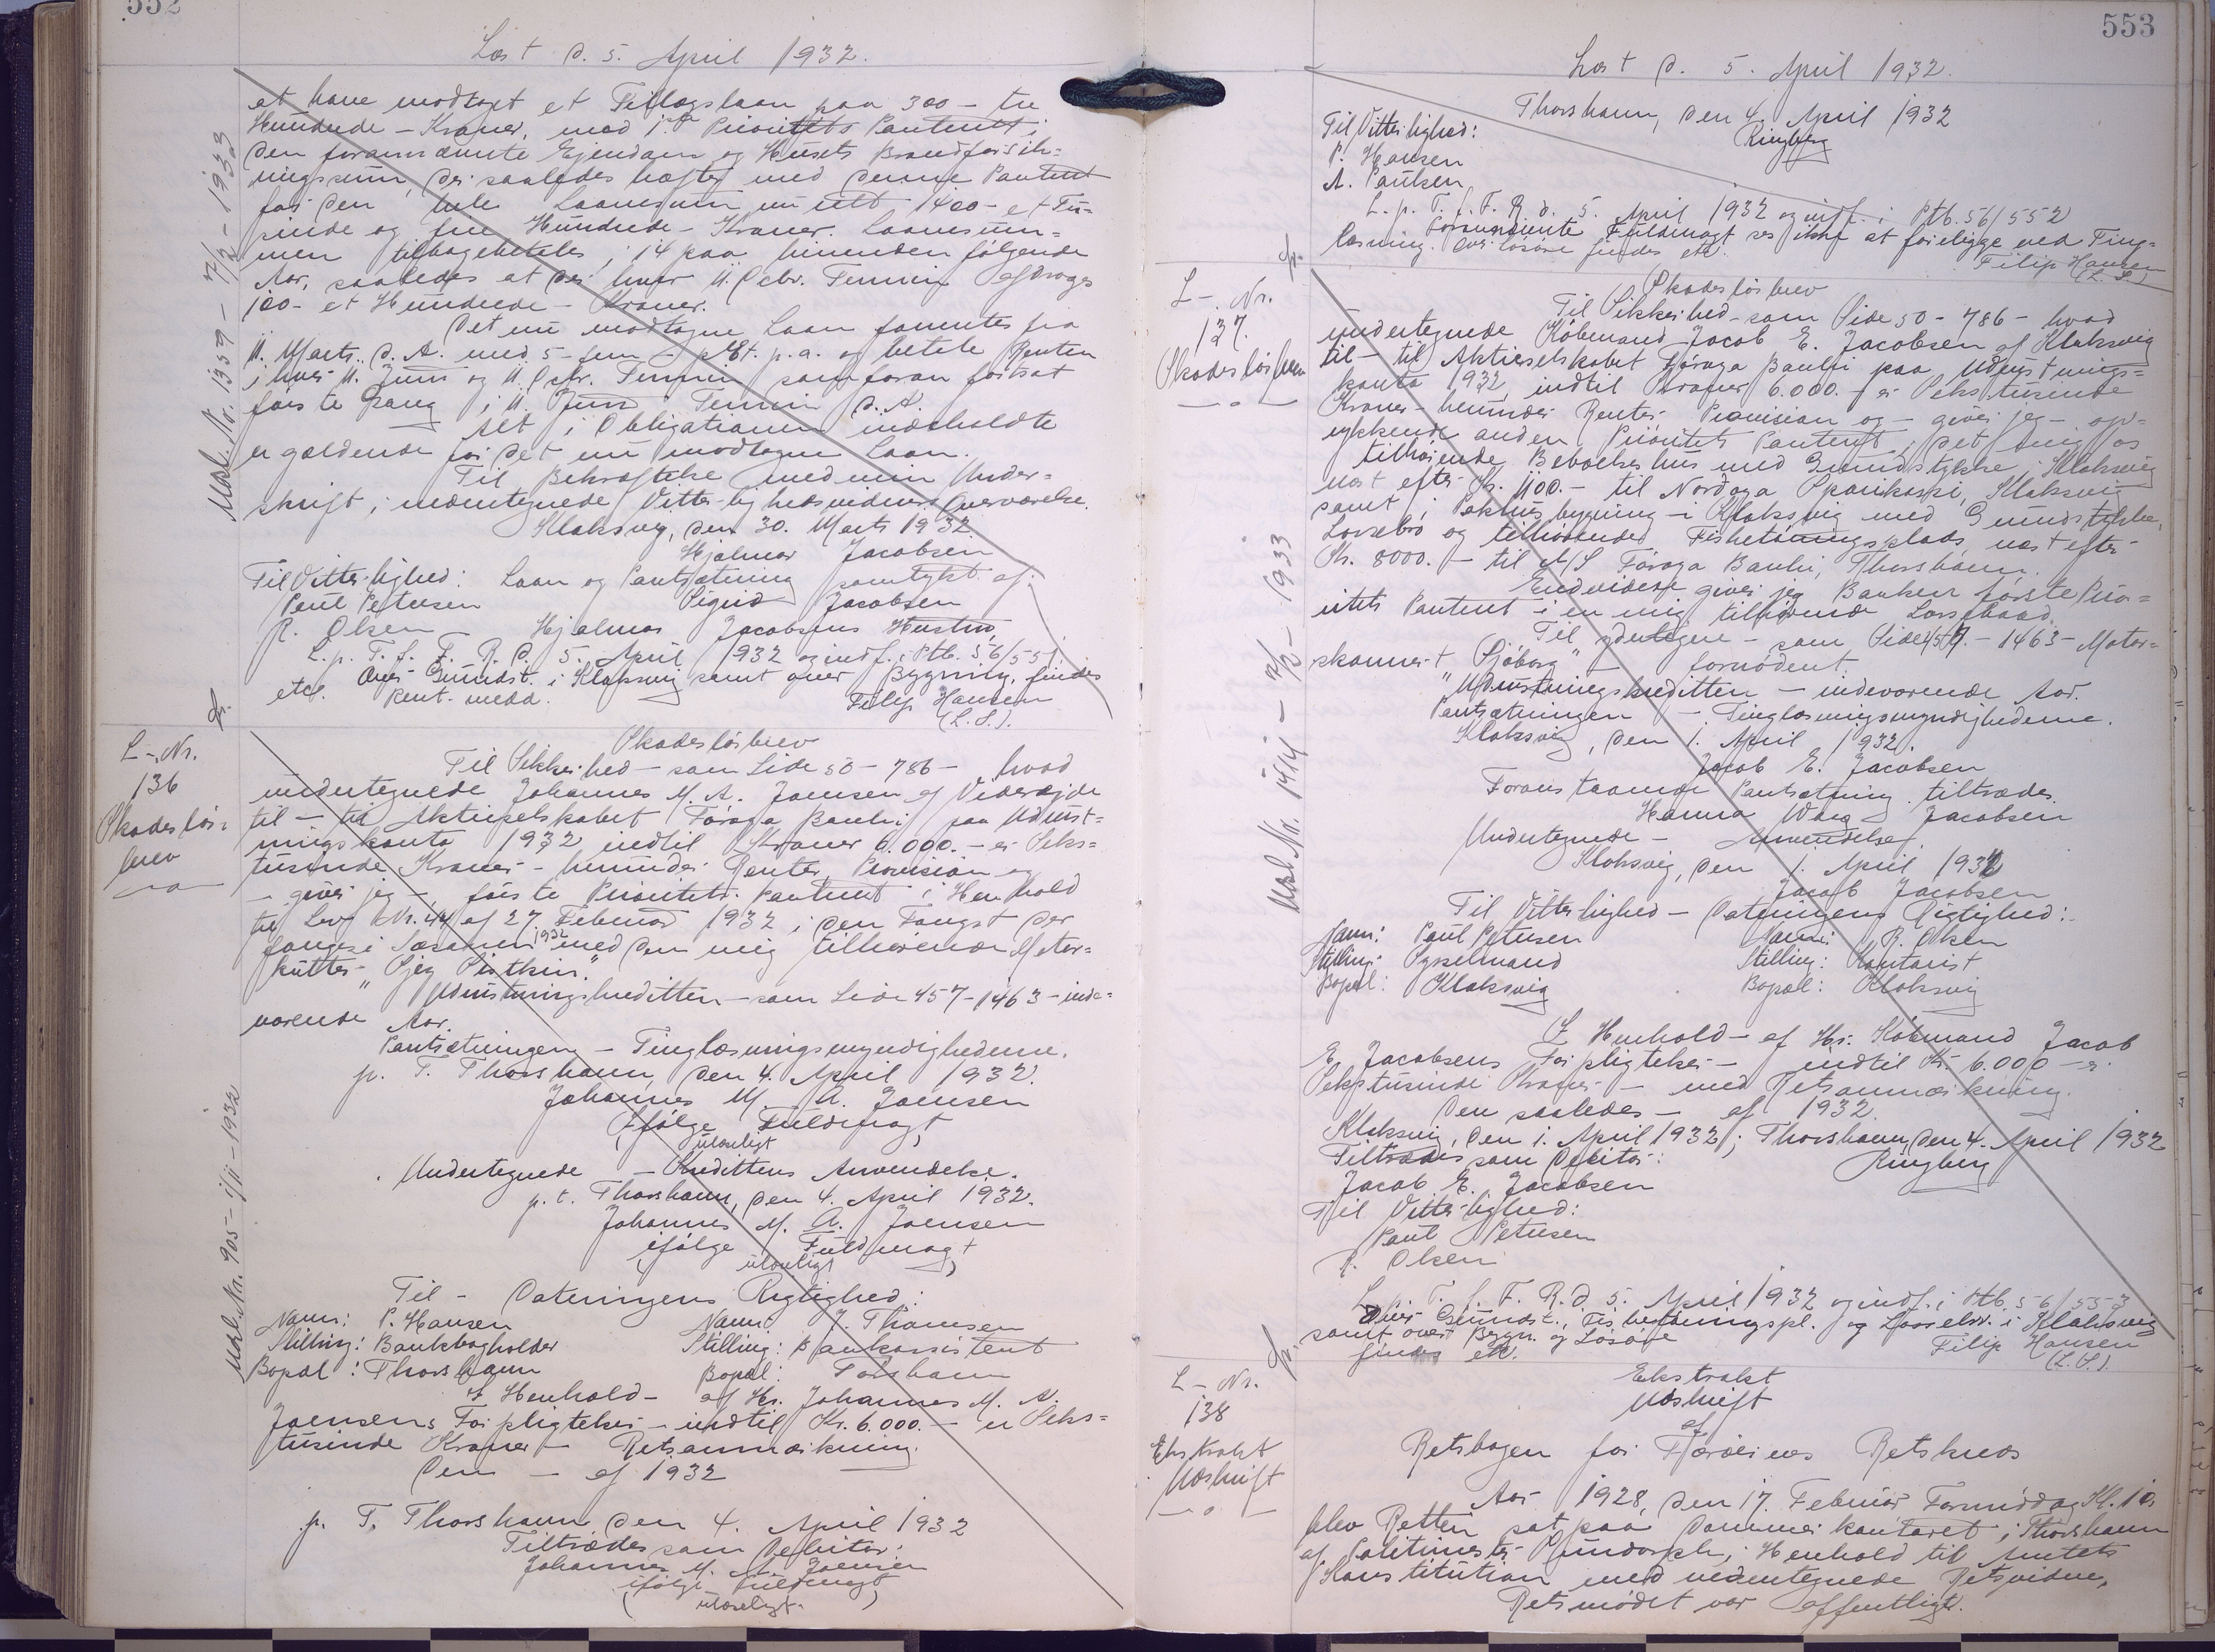 552
Læst d. 5. April 1932.
at have modtaget et Tillægslaan paa 300 - tre
Hundrede - Kroner, mod 1ste Prioritets Panteret i
den forannævnte Ejendom og Husets Brandforsik=
ringssum, der saaledes hæfter med denne Panteret
for den hele Laanesum nu ialt 1400 - et Tu=
sinde og fire Hundrede - Kroner. Laanesum=
men tilbagebetales i 14 paa hinanden følgende
Aar, saaledes at der hver 11. Decbr. Termin afdrages
100 - et Hundrede - Kroner.
Det nu modtagne Laan forrentes fra
11. Marts d. A. med 5 - fem - pCt. p.a. og betales Renten
i hver 11. Juni og 11. Decbr. Termin som foran fortsat
første Gang i 11 Juni Termin d. A.
Alt i Obligationen indeholdte
er gældende for det nu modtagne Laan.
Til Bekræftelse med min Under=
skrift i undertegnede Vitterlighedsvidners Overværelse.
Klaksvig, den 30. Marts 1932.
Hjalmar Jacobsen
Til Vitterlighed: Laan og Pantsætning samtykt af:
Poul Petersen Sigrid Jacobsen
R. Olsen Hjalmar Jacobsens Hustru
L. p. T. f. F. R. d. 5. April 1932 og indf. i Ptb. 56/551
Over Grundst. i Klaksvig samt over Bygning, findes
etc. Pant. medd.
Filip Hansen
(L. S.).
Udsl. No. 1339 - 7/2 - 1933
L-Nr.
136
Skadesløs=
brev
Skadesløsbrev
Til Sikkerhed - som Side 50 - 786 - hvad
undertegnede Johannes M. A. Joensen af Viderejde
til - til Aktieselskabet Føroya Banki paa Udrust=
ningskonto 1932 indtil Kroner 6.000. - er Seks=
tusinde Kroner - herunder Renter, Provision og
- giver jeg - første Prioritets Panteret i Henhold
til Lov Nr. 44 af 27. Februar 1932 i den Fangst der
fanges i Sæsonen 1932 med den mig tilhørende Motor=
kutter "
Udrustningskreditten - som Side 457-1463 - inde=
værende Aar.
Pantsætningen - Tinglæsningsmyndighederne.
p. T. Thorshavn, den 4. April 1932.
Johannes M. A. Joensen
(ifølge Fuldmagt
ulæseligt
Undertegnede - Kredittens Anvendelse.
p. t. Thorshavn, den 4. April 1932.
Johannes M. A. Joensen
(ifølge Fuldmagt
ulæseligt )
Til - Dateringens Rigtighed:
Navn: P. Hansen Navn: J. Thomsen
Stilling: Bankbogholder Stilling: Bankassistent
Bopæl: Thorshavn Bopæl: Torshavn
I Henhold - af Hr. Johannes M. A.
Joensens Forpligtelser - indtil Kr. 6.000. - er Seks=
tusinde Kroner - Retsanmærkning.
Den - af 1932
p. T. Thorshavn den 4. April 1932
Tiltrædes som Debitor:
Johannes M. A. Joensen
(ifølge Fuldmagt
ulæseligt )
Udsl. Nr. 905 - 1/11 - 1932
553
Læst d. 5. April 1932.
Thorshavn, den 4. April 1932
Ringberg
Til Vitterlighed:
P. Hansen
A. Paulsen
L. p. T. f. F. R. d. 5. April 1932 og indf. i Ptb. 56/552
Fuldmagt ses ikke at foreligge ved Ting=
læsning. Over Løsøre findes etc.
Filip Hansen
(L. S.)
L-Nr.
137.
Skadesløsbrev
Skadesløsbrev
Til Sikkerhed - som Side 50 - 786 - hvad
undertegnede Købmand Jacob E. Jacobsen af Klaksvig
til - til Aktieselskabet Føroya Banki paa Udrustnings=
konto 1932 indtil Kroner 6.000. - er Sekstusinde
Kroner - herunder Renter Provision og - giver jeg - op=
rykkende anden Prioritets Panteret i det mig
tilhørende Beboelseshus med Grundstykke i Klaksvig
næst efter Kr. 1100. - til Nordoya Sparikassi, Klaksvig
samt i Pakhusbygning i Klaksvig med Grundstykke,
Lossebro og tilhørende Fisketørringsplads næst efter
Kr. 8000. - til A/S Føroya Banki, Thorshavn.
Endvidere giver jeg Banken første Prio=
ritets Panteret i en mig tilhørende Lossebaad.
Til yderligere - som Side 457 - 1463 - Motor=
skonnert "Sjóborg" - fornødent.
Udrustningskreditten - indeværende Aar.
Pantsætningen - Tinglæsningsmyndighederne.
Klaksvig, den 1. April 1932.
Jacob E. Jacobsen
Foranstaaende Pantsætning tiltrædes.
Hanna Waag Jacobsen
Undertegnede - Anvendelse.
Klaksvig, den 1. April 1932
Jacob Jacobsen
Til Vitterlighed - Dateringens Rigtighed:
Navn: Poul Petersen Navn: R. Olsen
Stilling: Sysselmand Stilling: Kontorist
Bopæl: Klaksvig Bopæl: Klaksvig
I Henhold - af Hr. Købmand Jacob
E. Jacobsens Forpligtelser - indtil Kr. 6.000 - er
Sekstusinde Kroner - med Retsanmærkning.
Den saaledes - af 1932.
Klaksvig, den 1. April 1932; Thorshavn, den 4. April 1932
Tiltrædes som Debitor: Ringberg
Jacob E. Jacobsen
Til Vitterlighed:
Poul Petersen
R. Olsen
L. p. T. f. F. R. d. 5. April 1932 og indf. i Ptb. 56/553
Over Grundst., Fisketørringspl. og Lossebro i Klaksvig
samt over Bygn. og Løsøre
findes etc.
Filip Hansen
(L. S.).
Udsl. Nr. 1414 - 7/2 - 1933
L-Nr.
138
Ekstrakt
Udskrift
Ekstrakt
Udskrift
af
Retsbogen for Færøernes Retskreds
Aar 1928, den 17. Februar Formiddag Kl. 10
blev Retten sat paa Dommerkontoret i Thorshavn
af Politimester i Henhold til Amtets
Konstitution med undertegnede Retsvidne.
Retsmødet var offentligt.